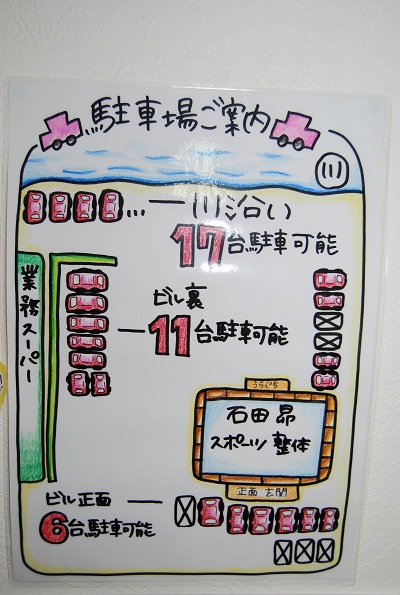 駐車場ご案内
川
…ー川沿い
17台駐車可能
業務スーパー
ビル裏
ー11台駐車可能
うらぐち
石田昂
スポーツ整体
正面玄関
ビル正面ー
6台駐車可能